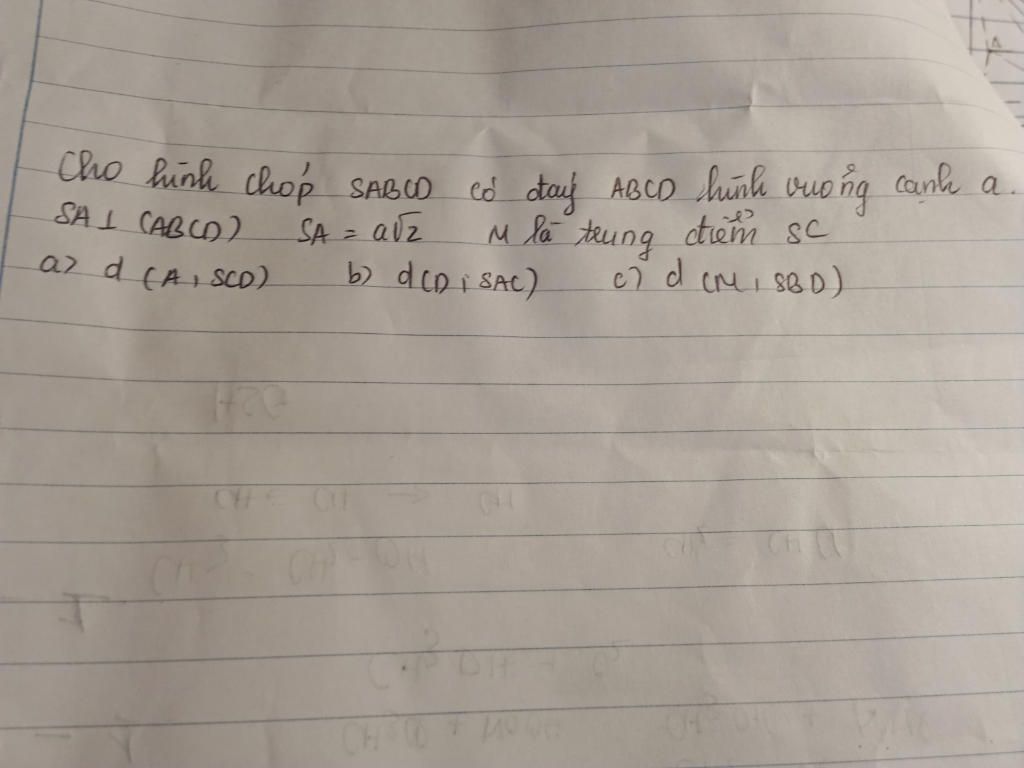 Cho hình chóp SABCD có đáy ABCD hình vuông cạnh a.
SA ⊥ (ABCD) SA = a√2 M là trung điểm SC
a) d (A, SCD) b) d(D, SAC) c) d (M, SBD)